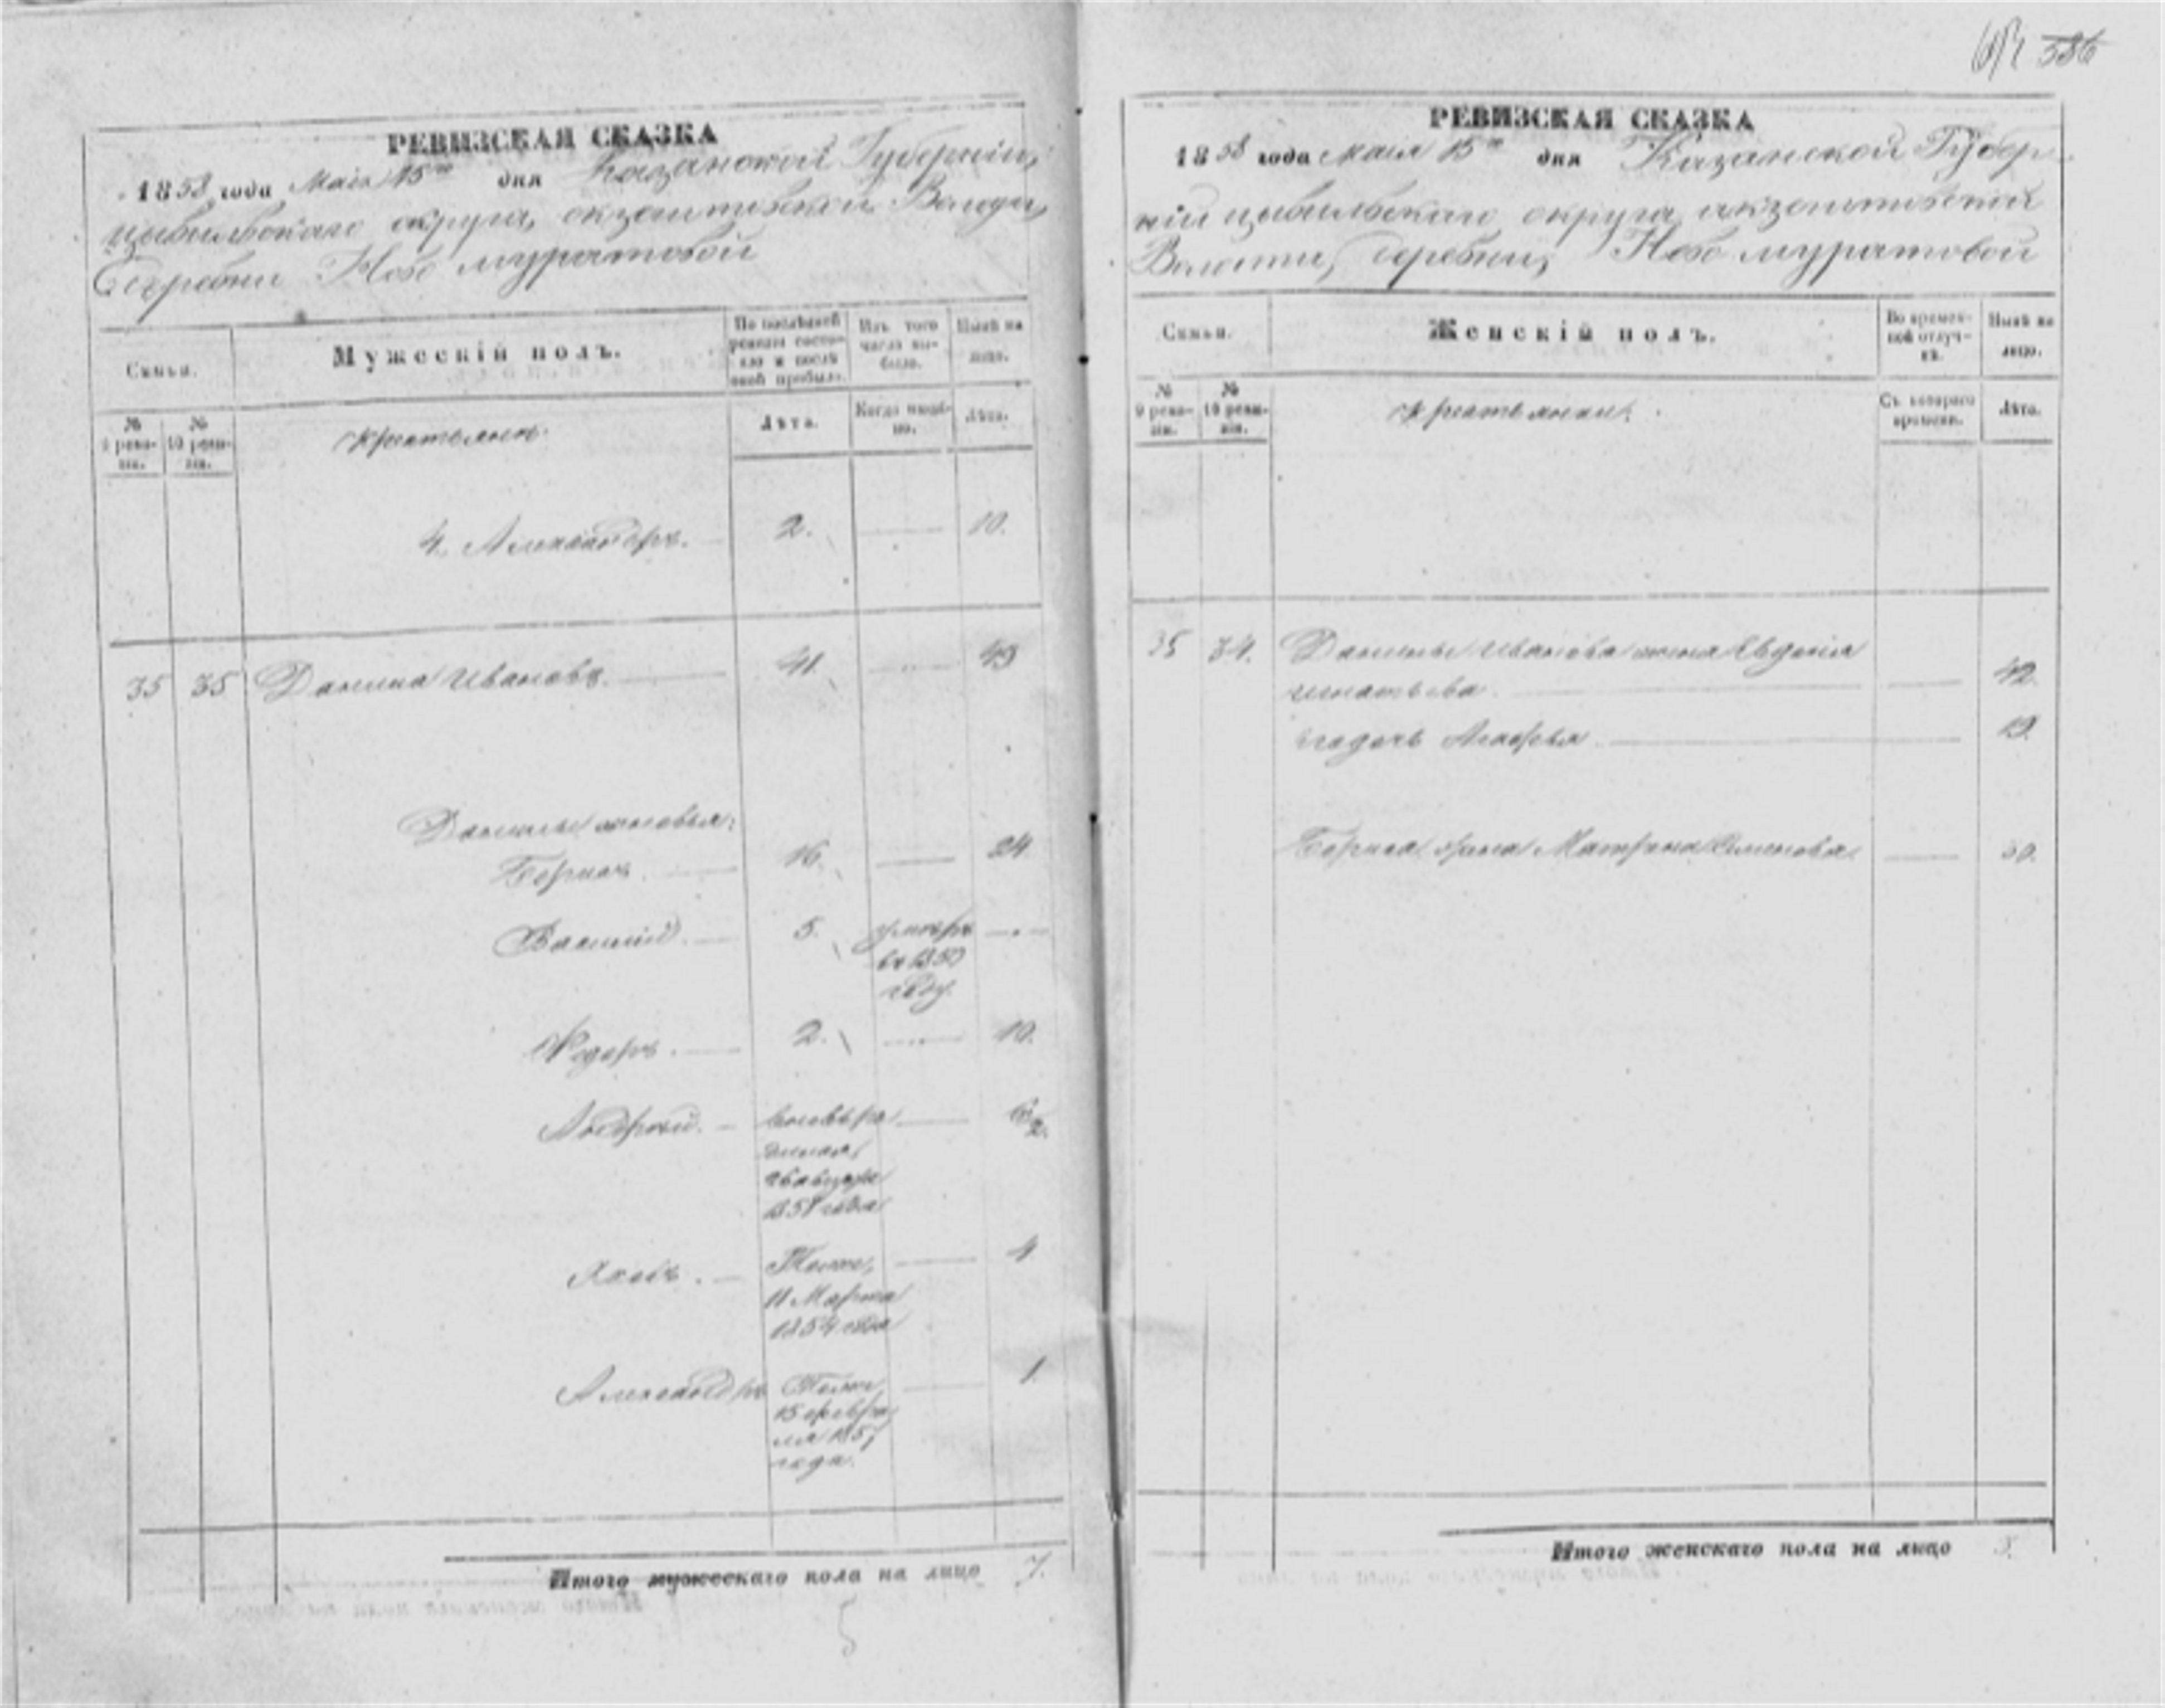 586
РЕВИЗСКАЯ СКАЗКА
1858 года Маія 15го дня Казанской Губерніи,
цывильскаго округа,
Деревни Ново муратовой
Семьи.
Мужескій полъ.
По послѣдней ревизіи состояло и послѣ оной прибыло.
Изъ того числа выбыло.
Нынѣ на лицо.
№ 9 ревизіи.
№ 10 ревизіи.
Лѣта.
Когда имянно.
Лѣта.
4. Александръ. 2. 10.
35 35 Данила Ивановъ. 41. 49
Данилы сыновья:
Борисъ. 16. 24.
Василій. 5. умеръ
въ 1850
году.
Ѳедоръ. 2. 10.
Андрей.
Яковъ. Тоже, 4
11 Марта
1854 года
Александръ Тоже, 1.
15 февра
ля 1857
года.
Итого мужескаго пола на лицо 7.
5
РЕВИЗСКАЯ СКАЗКА
1858 года Маія 15го дня Казанской Губер
ніи цывильскаго округа,
Волости, деревни, Ново муратовой
Семьи.
Женскій полъ.
Во временной отлучкѣ.
Нынѣ на лицо.
№ 9 ревизіи.
№ 10 ревизіи.
Съ котораго времени.
Лѣта.
35 34. Данилы Иванова жена Авдотья
Игнатьева. 42.
19.
Бориса жена Матрена Семенова. 30.
Итого женскаго пола на лицо 3.